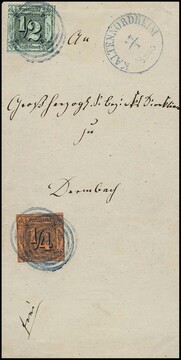 1/2
KALTENNORDHEIM
An
Großherzogl. S. Bezirks Direktion
zu
Dermbach
1/4
frei